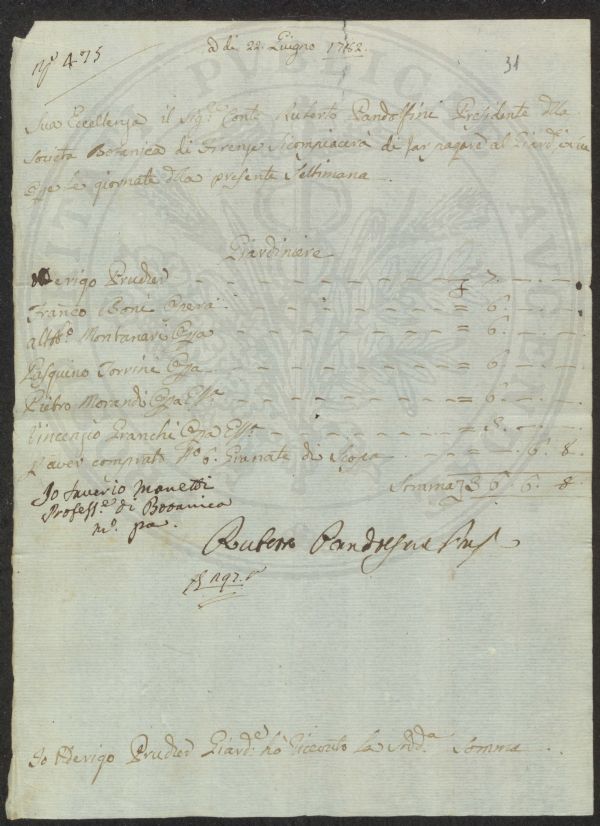 N.º 475
a di 22. Giugno 1762.
31
Sua Eccellenza il Sig.r Conte Ruberto Pandolfini Presidente della
Societa Botanica di Firenze si compiacerà di far pagare al Giard.
le giornate della presente Settimana
Giardiniere
Derigo Prudier = 7.
Franco Boni Opera = 6.
Montanari Opra = 6.
Pasquino Torrini Opra = 6
Pietro Morandi Opra Ess.a = 6.
Vincenzio Granchi Opra Ess.a
P aver comprato N.º 6. Granate di Scopa 6. 8.
Somma 6. 6. 8.
Io Saverio Manetti
Profess.e di Botanica
m.º pa.
Ruberto Pandolfini Pres
Io Derigo Prudier Giard.e hò riceuto la Sud.a Somma